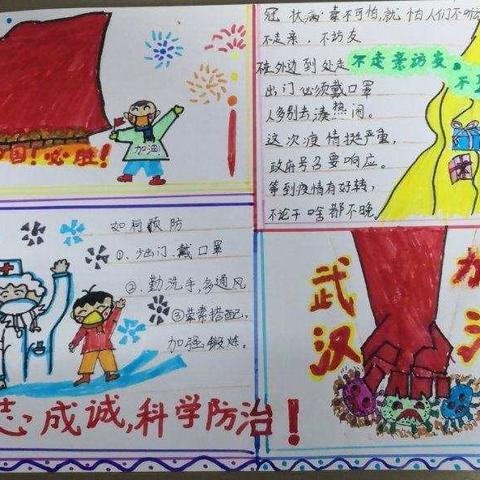 国！必胜！
加油
冠状病毒不可怕,就怕人们不听
不走亲,不访友
不走亲访友。不
碰外边到处走
出门必须戴口罩
人多别去凑热闹。
这次疫情挺严重,
政府号召要响应。
等到疫情有好转,
不论干啥都不晚。
如何预防
①.少出门.戴口罩
②.勤洗手,多通风
③荤素搭配,
加强锻炼。
武汉
加
志成诚,科学防治！